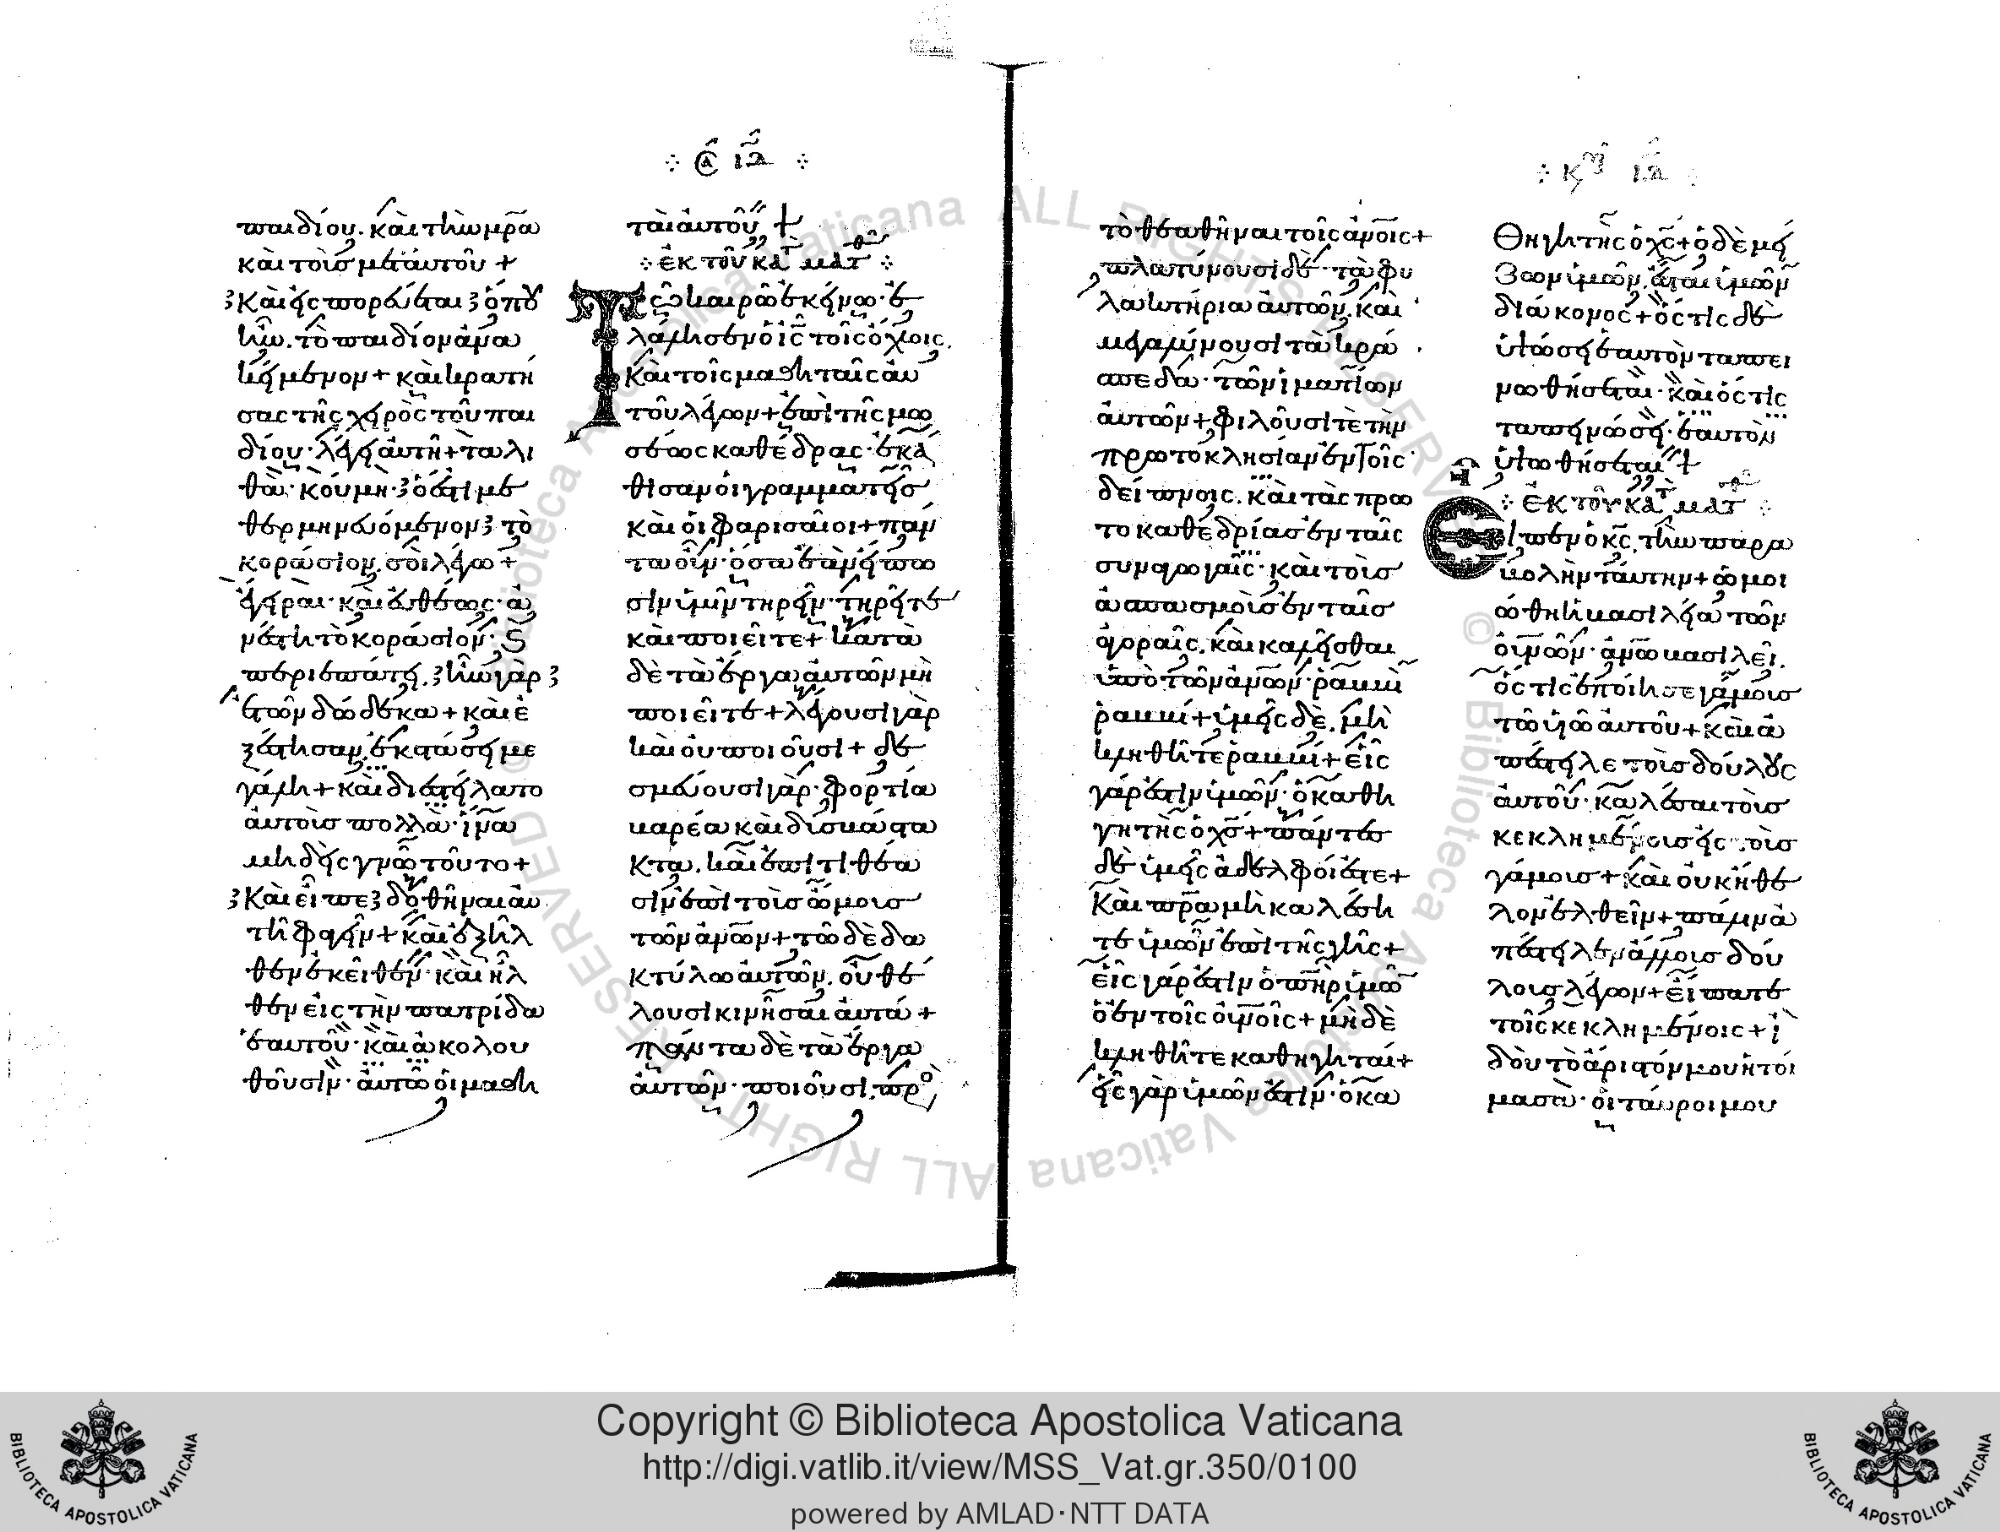 παιδίου. καὶ τὴν μρ̅α
καὶ τοὺς μετ αὐτοῦ +
καὶ εἰσπορεύεται ὅπου
ἦν. τὸ παιδίον ἀνα
κείμενον + καὶ κρατή
σας τῆς χειρὸς τοῦ παι
δίου· λέγει αὐτῆ + ταλι
θὰ· κούμη· ὅ ἐστι με
θερμηνευόμενον τὸ
κοράσιον, σοὶ λέγω +
ἔγειραι· καὶ εὐθέως· ἀ
νέστη τὸ κοράσιον· καὶ
περιεπάτει. ἦν γὰρ
ἐτῶν δώδεκα + καὶ ἐ
ξέστησαν, ἐκστάσει με
γάλη + καὶ διεστείλατο
αὐτοῖς πολλὰ· ἵνα
μηδεὶς γνῶ τοῦτο +
καὶ εἶπε δοθῆναι αὐ
τῆ φαγεῖν + καὶ ἐξῆλ
θεν ἐκεῖθεν· καὶ ἦλ
θεν εἰς τὴν πατρίδα
ἑαυτοῦ· καὶ ἀκολου
θοῦσιν· αὐτῶ οἱ μαθη
ταὶ αὐτοῦ +
ἐκ τοῦ κατ ματθ
Τῶ καιρῶ ἐκείνω· ἐ
λάλησεν ὁ ι̅ς̅ τοῖς ὄχλοις,
καὶ τοῖς μαθηταῖς αὐ
τοῦ λέγων + ἐπὶ τῆς μω
σέως καθέδρας· ἐκά
θισαν οἱ γραμματεῖς
καὶ οἱ φαρισαῖοι + πάν
τα οὖν· ὅσα ἐὰν εἴπω
σιν ὑμῖν τηρεῖν· τηρεῖτε
καὶ ποιεῖτε + κατὰ
δὲ τὰ ἔργα αὐτῶν μὴ
ποιεῖτε + λέγουσι γὰρ
καὶ οὐ ποιοῦσι + δε
σμεύουσι γὰρ· φορτία
βαρέα καὶ δυσβάστα
κτα, καὶ ἐπιτιθέα
σιν ἐπὶ τοὺς ὤμους
τῶν ἀνων + τῶ δὲ δα
κτύλω αὐτῶν, οὐ θέ
λουσι κινῆσαι αὐτά +
πάντα δὲ τὰ ἔργα
αὐτῶν· ποιοῦσι, πρὸς
τὸ θεαθῆναι τοῖς ἀνοις +
πλατύνουσι δὲ· τὰ φυ
λακτήρια αὐτῶν, καὶ
μεγαλύνουσι τὰ κρά
σπεδα· τῶν ἱματίων
αὐτῶν + φιλοῦσί τε τὴν
πρωτοκλησίαν ἐν τοῖς
δείπνοις, καὶ τὰς πρω
τοκαθεδρίας ἐν ταῖς
συναγωγαῖς· καὶ τοὺς
ἀσπασμοὺς ἐν ταῖς
ἀγοραῖς, καὶ καλεῖσθαι
ὑπὸ τῶν ἀνων· ῥαββὶ
ῥαββί + ὑμεῖς δὲ, μὴ
κληθῆτε ῥαββί + εἷς
γάρ ἐστιν ὑμῶν· ὁ καθη
γητὴς ὁ χς + πάντες
δὲ ὑμεῖς ἀδελφοί ἐστε +
καὶ πρ̅α μὴ καλέση
τε ὑμῶν ἐπὶ τῆς γῆς +
εἷς γάρ ἐστιν ὁ πηρ ὑμῶ
ὁ ἐν τοῖς οὐνοις + μὴ δὲ
κληθῆτε καθηγηταί +
εἷς γὰρ ὑμῶν ἐστιν· ὁ κα
θηγητὴς ὁ χς + ὁ δὲ μεί
ζων ὑμῶν, ἔσται ὑμῶν
διάκονος + ὅστις δὲ
ὑψώσει ἑαυτὸν ταπει
νωθήσεται· καὶ ὅστις
ταπεινώσει· ἑαυτὸν
ὑψωθήσεται +
ἐκ τοῦ κατ ματθ
Εἶπεν ὁ κς, τὴν παρα
βολὴν ταύτην + ὡμοι
ώθη ἡ βασιλεία τῶν
οὐνων· ἀνω βασιλεῖ,
ὅστις ἐποίησε γάμους
τῶ υἱῶ αὐτοῦ + καὶ ἀ
πέστειλε τοὺς δούλους
αὐτοῦ· καλέσαι τοὺς
κεκλημένους εἰς τοὺς
γάμους + καὶ οὐκ ἤθε
λον ἐλθεῖν + πάλιν ἀ
πέστειλεν ἄλλους δού
λους λέγων + εἴπατε
τοῖς κεκλημένοις + ἰ
δοὺ τὸ ἄριστόν μου ἡτοί
μασα· οἱ ταῦροι μου
Copyright © Biblioteca Apostolica Vaticana
http://digi.vatlib.it/view/MSS_Vat.gr.350/0100
powered by AMLAD·NTT DATA
BIBLIOTECA APOSTOLICA VATICANA
BIBLIOTECA APOSTOLICA VATICANA
© Biblioteca Apostolica Vaticana ALL RIGHTS RESERVED